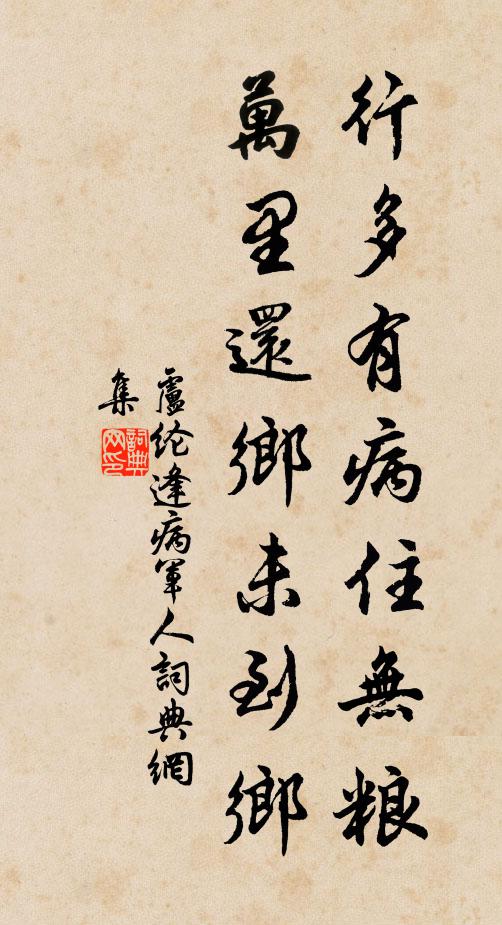 行多有病住無粮
萬里還鄉未到鄉
盧纶逢病軍人詞典網
集
詞典
网印